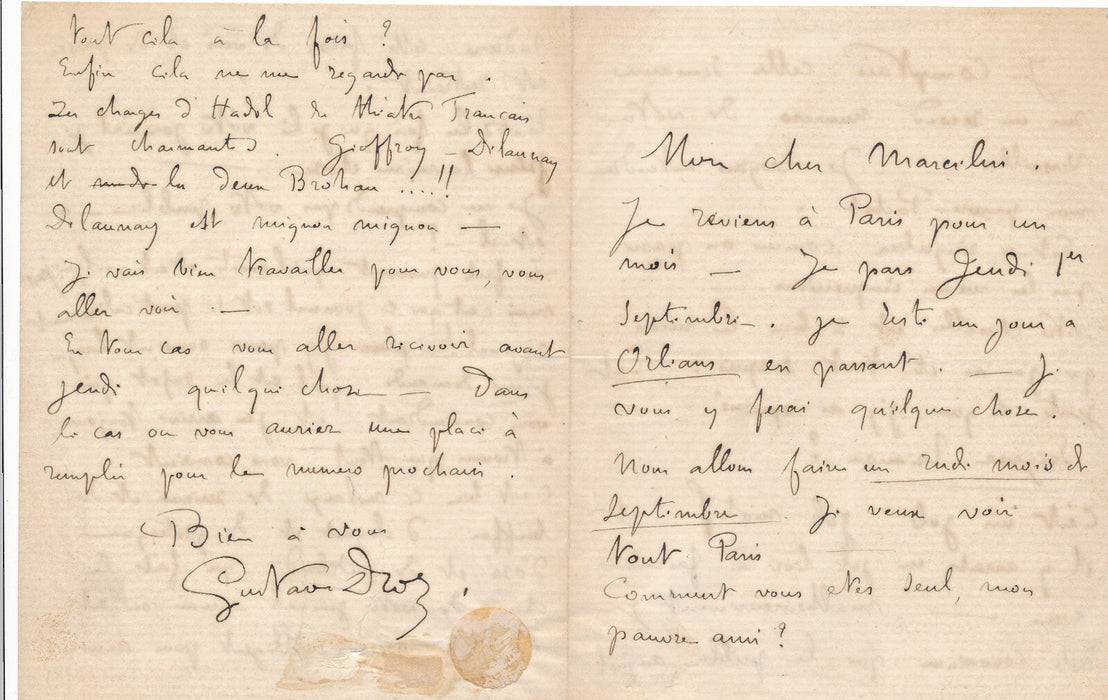 tout cela à la fois ?
Enfin cela ne me regarde pas .
Les charges d'Hadol du théatre Francais
sont charmantes . Geoffroy – Delaunay
et les deux Brohan ....!!
Delaunay est mignon mignon — .
Je vais bien travailler pour vous, vous
aller voir . —
En tout cas vous aller recevoir avant
jeudi quelque chose — Dans
le cas ou vous auriez une place à
remplir pour le numero prochain .
Bien à vous
Gustave Droz .
Mon cher Marcelin .
Je reviens à Paris pour un
mois — Je pars Jeudi 1er
Septembre — . je reste un jour a
Orléans en passant . — Je
vous y ferai quelque chose .
Nous allons faire un rude mois de
Septembre . Je veux voir
tout Paris
Comment vous etes seul, mon
pauvre ami ?